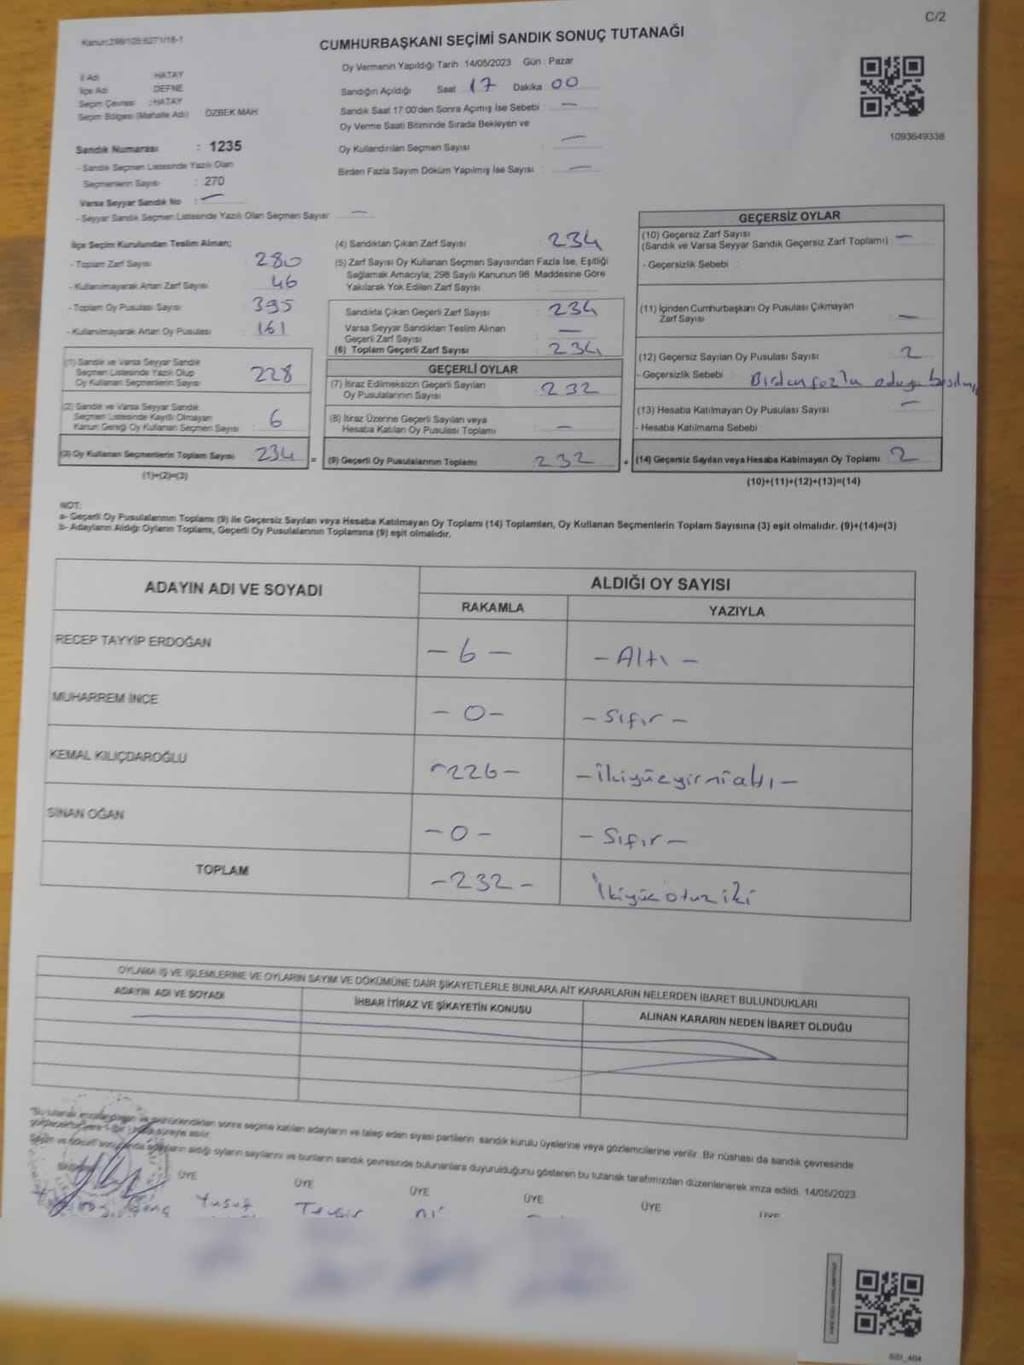 C/2
Kanun:298/105;6271/16-1
CUMHURBAŞKANI SEÇİMİ SANDIK SONUÇ TUTANAĞI
İl Adı : HATAY
İlçe Adı : DEFNE
Seçim Çevresi : HATAY
Seçim Bölgesi (Mahalle Adı) ÖZBEK MAH
Oy Vermenin Yapıldığı Tarih :14/05/2023 Gün : Pazar
Sandığın Açıldığı Saat 17 Dakika 00
Sandık Saat 17:00'den Sonra Açılmış İse Sebebi : —
Oy Verme Saati Bitiminde Sırada Bekleyen ve
Oy Kullandırılan Seçmen Sayısı —
Birden Fazla Sayım Döküm Yapılmış İse Sayısı : —
1093649338
Sandık Numarası : 1235
- Sandık Seçmen Listesinde Yazılı Olan
Seçmenlerin Sayısı : 270
Varsa Seyyar Sandık No : —
- Seyyar Sandık Seçmen Listesinde Yazılı Olan Seçmen Sayısı : —
İlçe Seçim Kurulundan Teslim Alınan;
- Toplam Zarf Sayısı 280
- Kullanılmayarak Artan Zarf Sayısı 46
- Toplam Oy Pusulası Sayısı 395
- Kullanılmayarak Artan Oy Pusulası 161
(1) Sandık ve Varsa Seyyar Sandık
Seçmen Listesinde Yazılı Olup
Oy Kullanan Seçmenlerin Sayısı 228
(2) Sandık ve Varsa Seyyar Sandık
Seçmen Listesinde Kayıtlı Olmayan
Kanun Gereği Oy Kullanan Seçmen Sayısı 6
(3) Oy Kullanan Seçmenlerin Toplam Sayısı 234
(1)+(2)=(3)
(4) Sandıktan Çıkan Zarf Sayısı 234
(5) Zarf Sayısı Oy Kullanan Seçmen Sayısından Fazla İse, Eşitliği
Sağlamak Amacıyla; 298 Sayılı Kanunun 98. Maddesine Göre
Yakılarak Yok Edilen Zarf Sayısı
Sandıkta Çıkan Geçerli Zarf Sayısı 234
Varsa Seyyar Sandıktan Teslim Alınan
Geçerli Zarf Sayısı —
(6) Toplam Geçerli Zarf Sayısı 234
GEÇERLİ OYLAR
(7) İtiraz Edilmeksizin Geçerli Sayılan
Oy Pusulalarının Sayısı 232
(8) İtiraz Üzerine Geçerli Sayılan veya
Hesaba Katılan Oy Pusulası Toplamı —
= (9) Geçerli Oy Pusulalarının Toplamı 232 +
GEÇERSİZ OYLAR
(10) Geçersiz Zarf Sayısı —
(Sandık ve Varsa Seyyar Sandık Geçersiz Zarf Toplamı)
- Geçersizlik Sebebi :
(11) İçinden Cumhurbaşkanı Oy Pusulası Çıkmayan
Zarf Sayısı —
(12) Geçersiz Sayılan Oy Pusulası Sayısı 2
- Geçersizlik Sebebi : Birden fazla adaya basılmış
(13) Hesaba Katılmayan Oy Pusulası Sayısı —
- Hesaba Katılmama Sebebi :
(14) Geçersiz Sayılan veya Hesaba Katılmayan Oy Toplamı 2
(10)+(11)+(12)+(13)=(14)
NOT:
a- Geçerli Oy Pusulalarının Toplamı (9) ile Geçersiz Sayılan veya Hesaba Katılmayan Oy Toplamı (14) Toplamları, Oy Kullanan Seçmenlerin Toplam Sayısına (3) eşit olmalıdır. (9)+(14)=(3)
b- Adayların Aldığı Oyların Toplamı, Geçerli Oy Pusulalarının Toplamına (9) eşit olmalıdır.
ADAYIN ADI VE SOYADI ALDIĞI OY SAYISI
RAKAMLA YAZIYLA
RECEP TAYYİP ERDOĞAN – 6 – – Altı –
MUHARREM İNCE – 0 – – Sıfır –
KEMAL KILIÇDAROĞLU – 226 – – İkiyüzyirmialtı –
SİNAN OĞAN – 0 – – Sıfır –
TOPLAM – 232 – İkiyüzotuziki
OYLAMA İŞ VE İŞLEMLERİNE VE OYLARIN SAYIM VE DÖKÜMÜNE DAİR ŞİKAYETLERLE BUNLARA AİT KARARLARIN NELERDEN İBARET BULUNDUKLARI
ADAYIN ADI VE SOYADI İHBAR İTİRAZ VE ŞİKAYETİN KONUSU ALINAN KARARIN NEDEN İBARET OLDUĞU
sonra seçime katılan adayların ve talep eden siyasi partilerin sandık kurulu üyelerine veya gözlemcilerine verilir. Bir nüshası da sandık çevresinde
adayların aldığı oyların sayılarını ve bunların sandık çevresinde bulunanlara duyurulduğunu gösteren bu tutanak tarafımızdan düzenlenerek imza edildi. 14/05/2023
ÜYE ÜYE ÜYE ÜYE ÜYE ÜYE
Yusuf